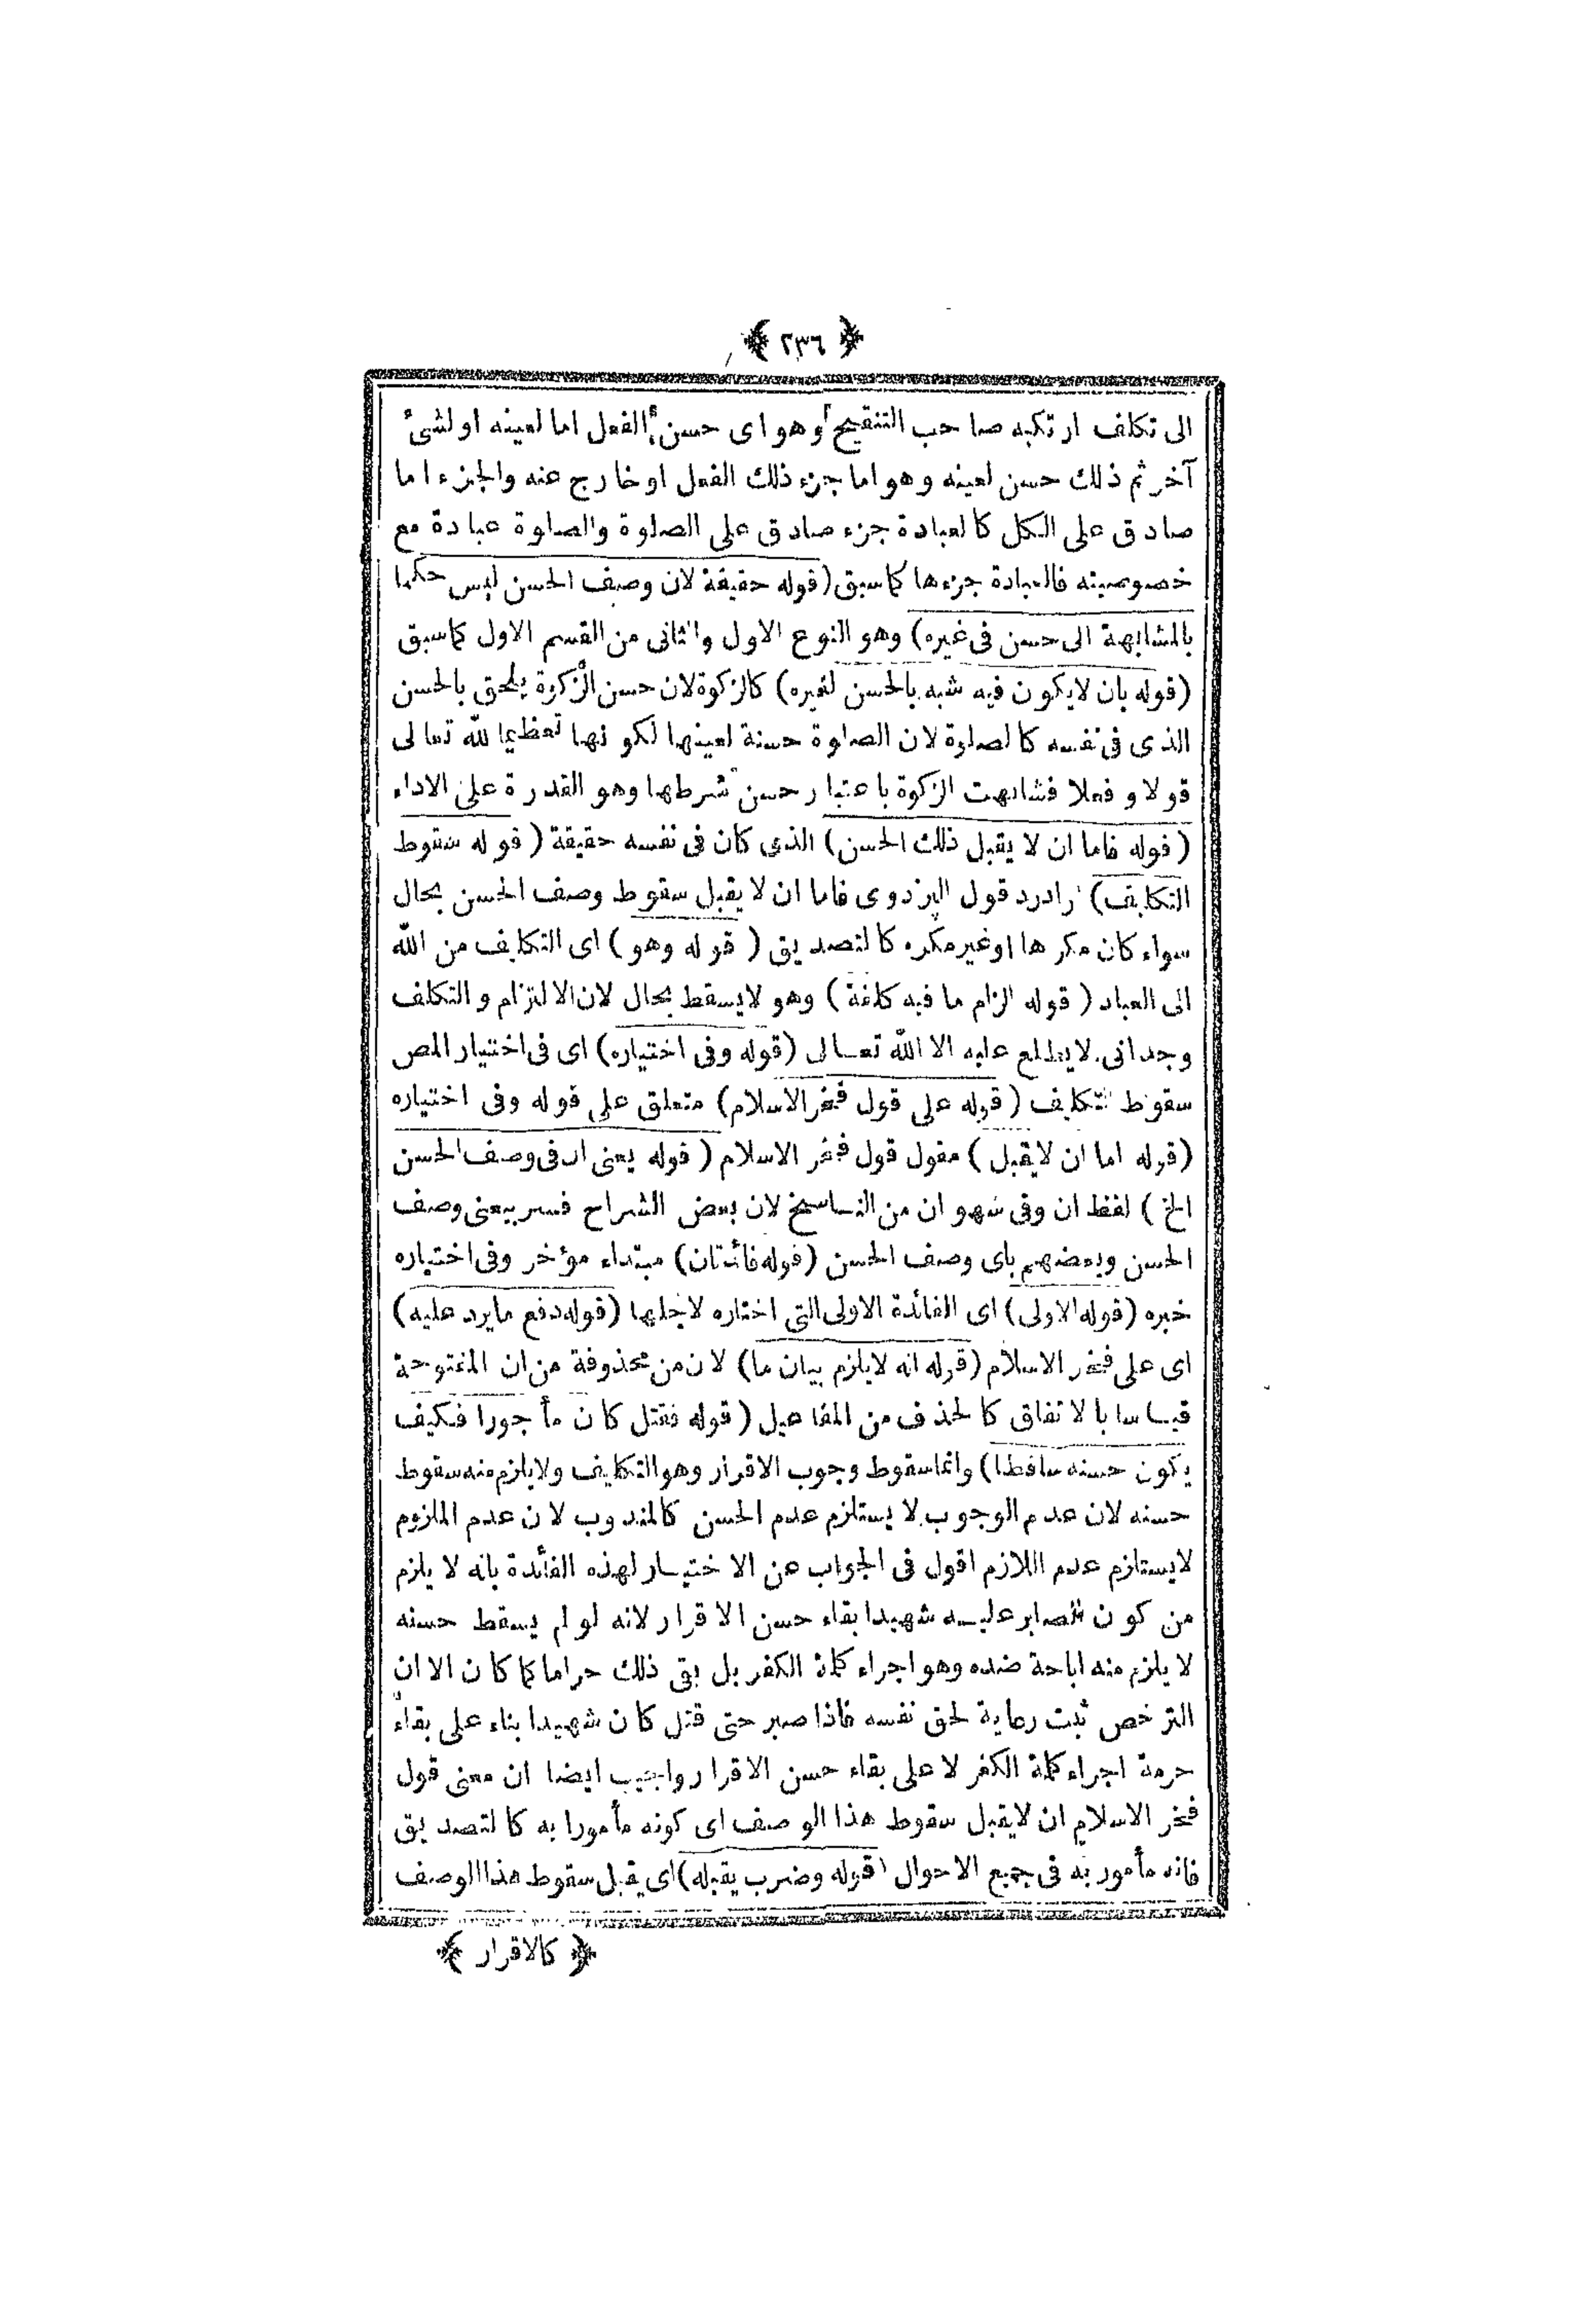 ﴿ ٢٣٦ ﴾
الى تكلف ارتكبه صاحب التنقيح وهو اى حسن الفعل اما لعينه او لشئ
آخر ثم ذلك حسن لعينه وهو اما جزء ذلك الفعل او خارج عنه والجزء اما
صادق على الكل كالعبادة جزء صادق على الصلوة والصلوة عبادة مع
خصوصيته فالعبادة جزءها كما سبق (قوله حقيقة لان وصف الحسن ليس حكما
بالمشابهة الى حسن فى غيره) وهو النوع الاول والثانى من القسم الاول كما سبق
(قوله بان لايكون فيه شبه بالحسن لغيره) كالزكوة لان حسن الزكوة يلحق بالحسن
الذى فى نفسه كالصلوة لان الصلوة حسنة لعينها لكونها تعظيما لله تعالى
قولا و فعلا فشابهت الزكوة باعتبار حسن شرطها وهو القدرة على الاداء
(قوله فاما ان لا يقبل ذلك الحسن) الذى كان فى نفسه حقيقة (قوله سقوط
التكليف) قول البزدوى فاما ان لا يقبل سقوط وصف الحسن بحال
سواء كان مكرها او غير مكره كالتصديق (قوله وهو) اى التكليف من الله
الى العباد (قوله الزام ما فيه كلفة) وهو لايسقط بحال لان الالتزام والتكلف
وجدانى لايطلع عليه الا الله تعالى (قوله وفى اختياره) اى فى اختيار المص
سقوط التكليف (قوله على قول فخر الاسلام) متعلق على قوله وفى اختياره
(قوله اما ان لايقبل) مقول قول فخر الاسلام (قوله يعنى ان فى وصف الحسن
الخ) لفظ ان وفى سهو ان من الناسخ لان بعض الشراح فسر بيعنى وصف
الحسن وبعضهم باى وصف الحسن (قوله فائدتان) مبتداء مؤخر وفى اختياره
خبره (قوله الاولى) اى الفائدة الاولى التى اختاره لاجلها (قوله دفع مايرد عليه)
اى على فخر الاسلام (قوله انه لايلزم بيان ما) لان من محذوفة من ان المفتوحة
قياسا بالاتفاق كالحذف من المفاعيل (قوله فقتل كان مأجورا فكيف
يكون حسنه ساقطا) وانما سقوط وجوب الاقرار وهو التكليف ولايلزم منه سقوط
حسنه لان عدم الوجوب لا يستلزم عدم الحسن كالمندوب لان عدم الملزوم
لايستلزم عدم اللازم اقول فى الجواب عن الاختيار لهذه الفائدة بانه لا يلزم
من كون الصابر عليه شهيدا بقاء حسن الاقرار لانه لو لم يسقط حسنه
لا يلزم منه اباحة ضده وهو اجراء كلمة الكفر بل بقى ذلك حراما كما كان الا ان
الترخص ثبت رعاية لحق نفسه فاذا صبر حتى قتل كان شهيدا بناء على بقاء
حرمة اجراء كلمة الكفر لا على بقاء حسن الاقرار واجيب ايضا ان معنى قول
فخر الاسلام ان لايقبل سقوط هذا الوصف اى كونه مأمورا به كالتصديق
فانه مأمور به فى جميع الاحوال (قوله وضرب يقبله) اى يقبل سقوط هذا الوصف
﴿ كالاقرار ﴾